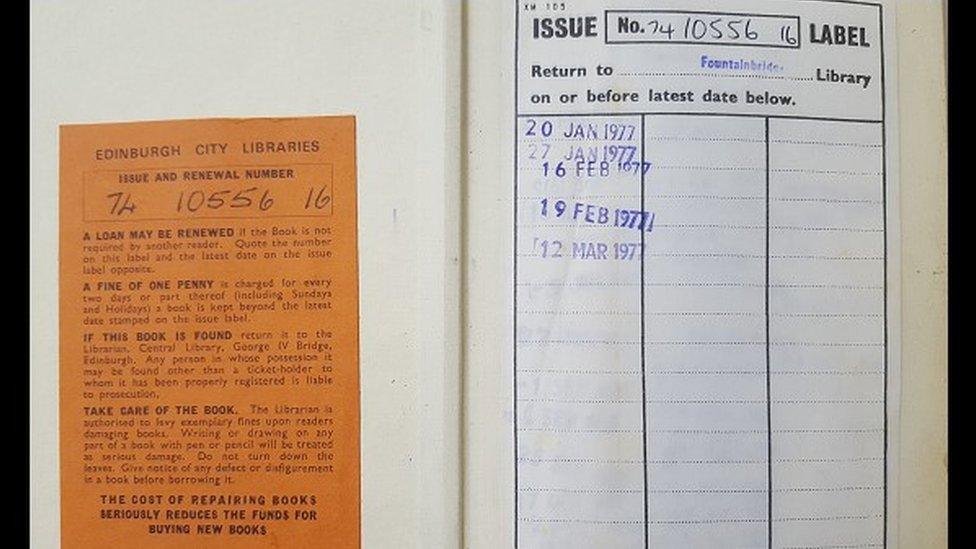 EDINBURGH CITY LIBRARIES
ISSUE AND RENEWAL NUMBER
74 10556 16
A LOAN MAY BE RENEWED if the Book is not
required by another reader. Quote the number
on this label and the latest date on the issue
label opposite.
A FINE OF ONE PENNY is charged for every
two days or part thereof (including Sundays
and Holidays) a book is kept beyond the latest
date stamped on the issue label.
IF THIS BOOK IS FOUND return it to the
Librarian, Central Library, George IV Bridge,
Edinburgh. Any person in whose possession it
may be found other than a ticket-holder to
whom it has been properly registered is liable
to prosecution.
TAKE CARE OF THE BOOK. The Librarian is
authorised to levy exemplary fines upon readers
damaging books. Writing or drawing on any
part of a book with pen or pencil will be treated
as serious damage. Do not turn down the
leaves. Give notice of any defect or disfigurement
in a book before borrowing it.
THE COST OF REPAIRING BOOKS
SERIOUSLY REDUCES THE FUNDS FOR
BUYING NEW BOOKS
XM 105
ISSUE No. 74 10556 16 LABEL
Return to Fountainbridge Library
on or before latest date below.
20 JAN 1977
27 JAN 1977
16 FEB 1977
19 FEB 1977
12 MAR 1977